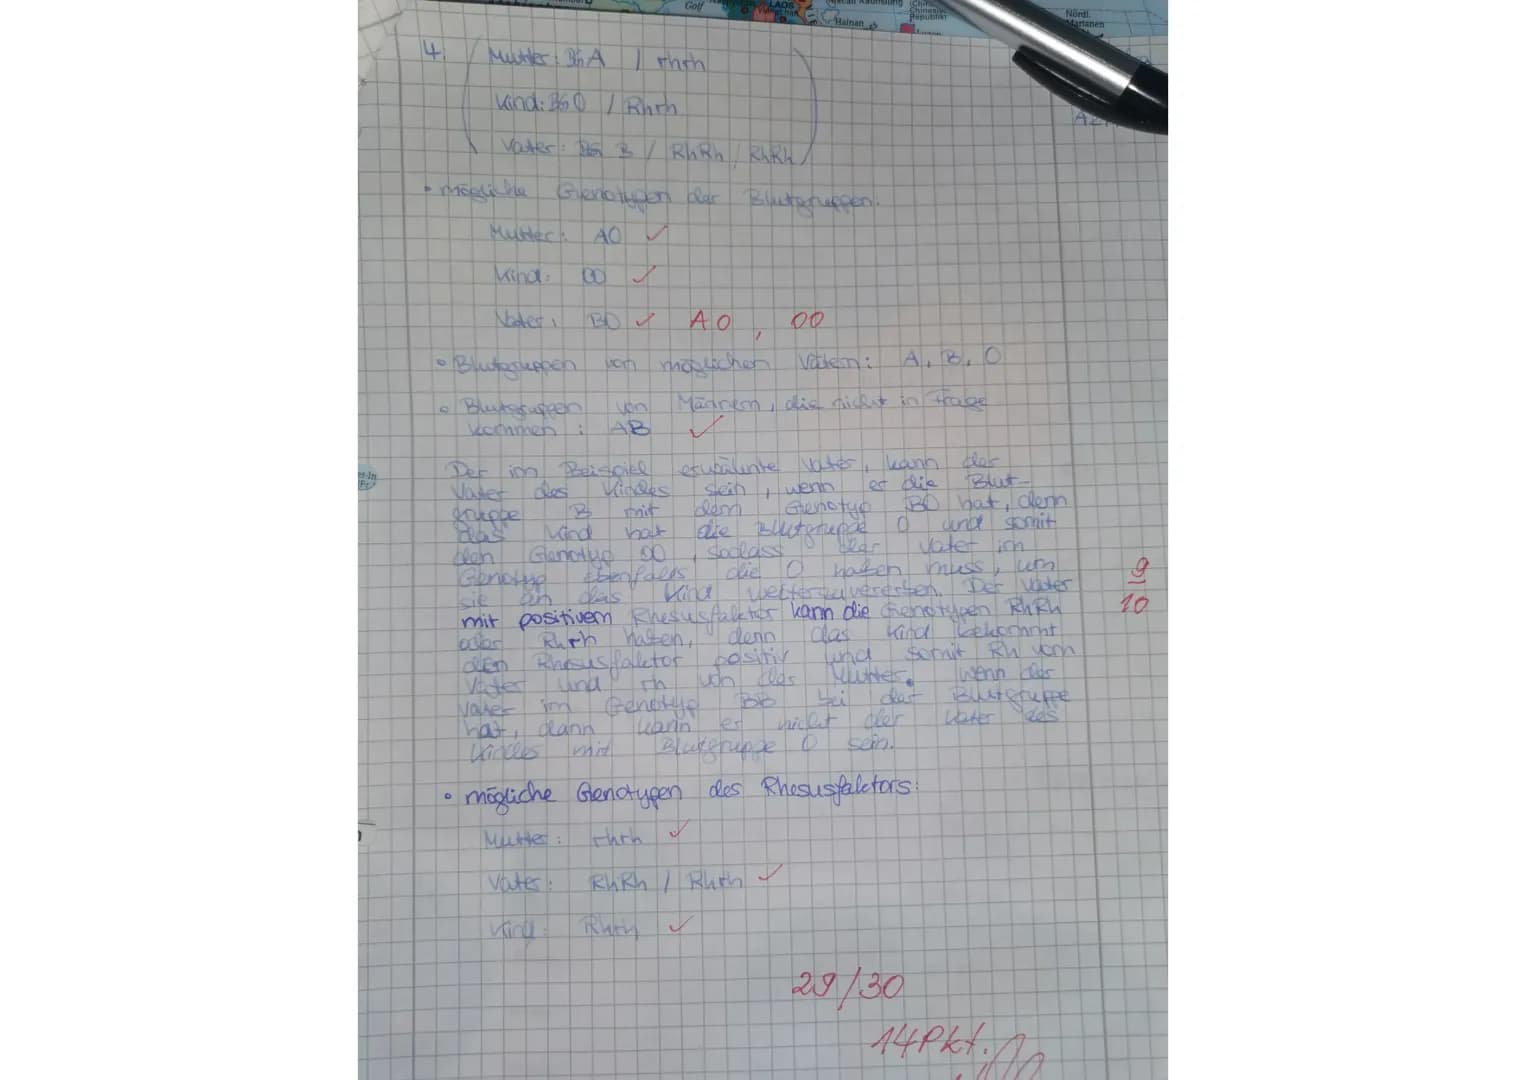 Golf
LAOS
Hainan
Republik
Nördl.
Marianen
4. Mutter: BG A / rhrh
Kind: BG 0 / Rhrh
Vater: BG B / RhRh, RhRh
• mögliche Genotypen der Blutgruppen:
Mutter: A0 ✓
Kind: 00 ✓
Vater: B0 ✓ A0, 00
• Blutgruppen von möglichen Vätern: A, B, 0
• Blutgruppen von Männern, die nicht in Frage
kommen: AB ✓
Der im Beispiel erwähnte Vater, kann der
Vater des Kindes sein, wenn er die Blut-
gruppe B mit dem Genotyp B0 hat, denn
das Kind hat die Blutgruppe 0 und somit
den Genotyp 00, sodass der Vater im
Genotyp ebenfalls die 0 haben muss, um
sie an das Kind weiterzuvererben. Der Vater
mit positivem Rhesusfaktor kann die Genotypen RhRh
oder Rhrh haben, denn das Kind bekommt
den Rhesusfaktor positiv und somit Rh vom
Vater und rh von der Mutter. Wenn der
Vater im Genotyp BB bei der Blutgruppe
hat, dann kann er nicht der Vater des
Kindes mit Blutgruppe 0 sein.
9
10
• mögliche Genotypen des Rhesusfaktors:
Mutter: rhrh ✓
Vater: RhRh / Rhrh ✓
Kind: Rhrh ✓
29/30
14Pkt.